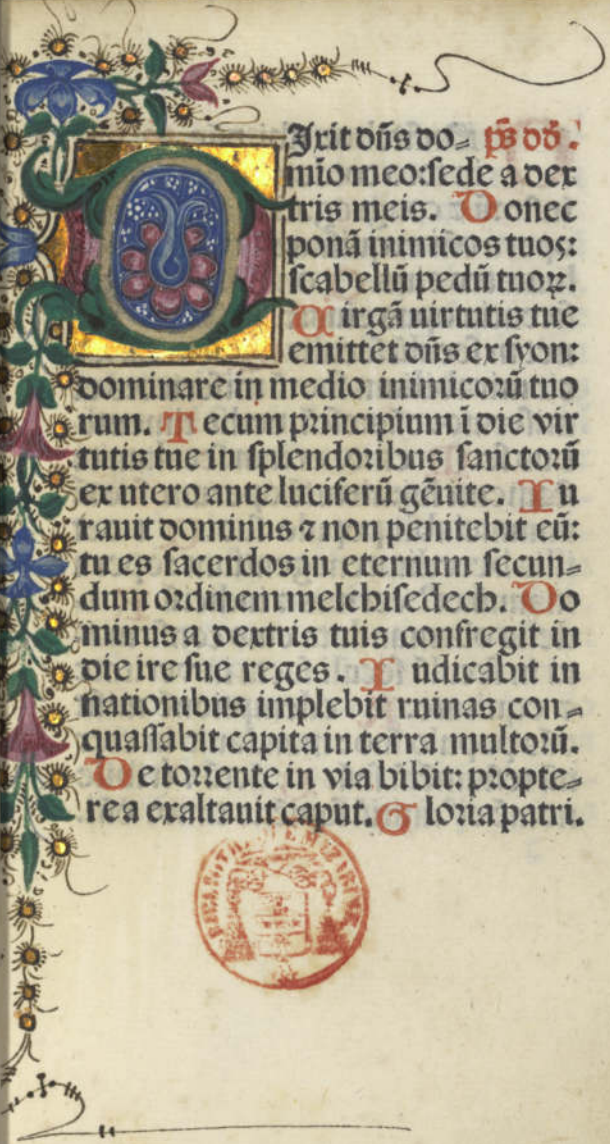 Dixit dñs do⸗ p̄s dd̄.
mio meo:sede a dex
tris meis. Donec
ponā inimicos tuos:
scabellū pedū tuoꝝ.
Uirgā uirtutis tue
emittet dñs ex syon:
dominare in medio inimicoꝛū tuo
rum. Tecum pꝛincipium ī die vir
tutis tue in splendoꝛibus sanctoꝛū
ex utero ante luciferū gēuite. Iu
rauit dominus ⁊ non penitebit eū:
tu es sacerdos in eternum secun⸗
dum oꝛdinem melchisedech. Do
minus a dextris tuis confregit in
die ire sue reges. Iudicabit in
nationibus implebit ruinas con⸗
quassabit capita in terra multoꝛū.
De toꝛrente in via bibit: pꝛopte⸗
rea exaltauit caput. Gloꝛia patri.